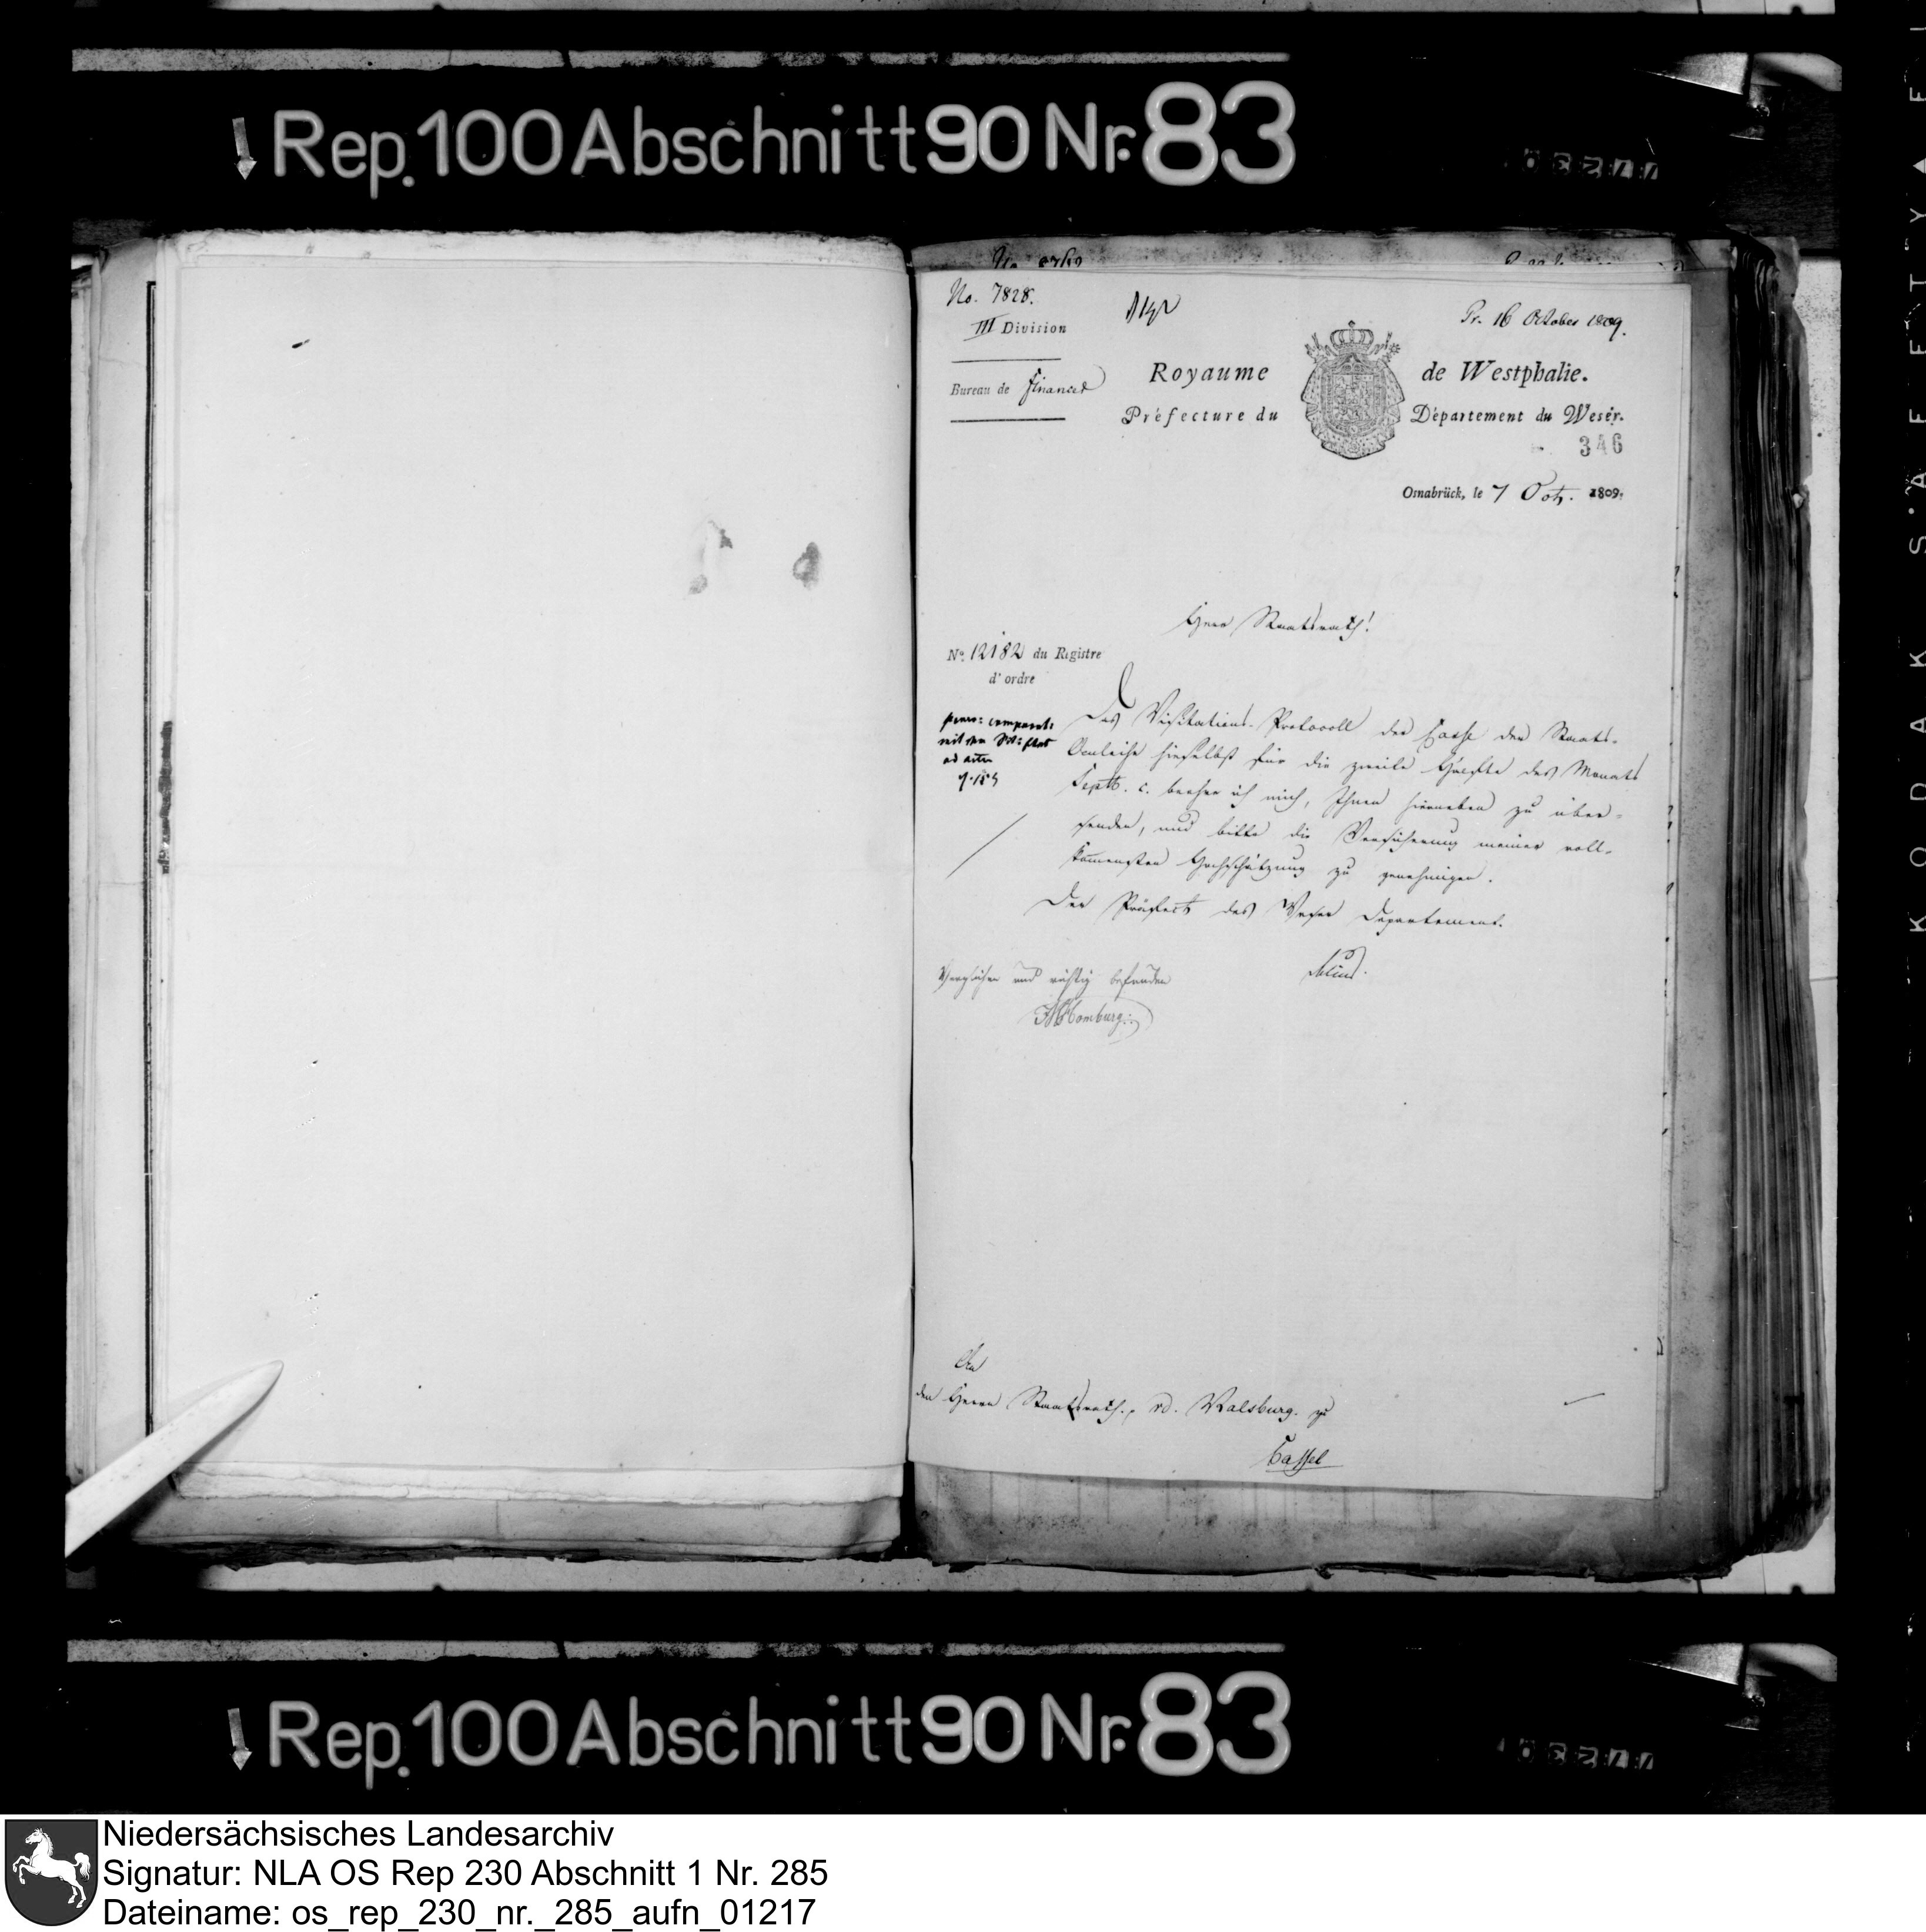 Rep. 100 Abschnitt 90 Nr. 83
No. 7828.
III Division
Pr. 16 October 1809.
Bureau de Finances
Royaume de Westphalie.
Préfecture du Département du Weser.
346
Osnabrück, le 7 Octr. 1809.
Herr Staatsrath!
No. 12182 du Registre
d'ordre
Das Visitations-Protocoll der Casse der Staats-
Anleihe hieselbst für die zweite Hälfte des Monats
Septb. c. beehre ich mich, Ihnen hierneben zu über-
senden, und bitte die Versicherung meiner voll-
kommensten Hochschätzung zu genehmigen.
Der Präfect des Weser Departement.
Verglichen und richtig befunden
Homburg
An
den Herrn Staatsrath, v. Malsburg. zu
Cassel
Rep. 100 Abschnitt 90 Nr. 83
KODAK SAFETY
Niedersächsisches Landesarchiv
Signatur: NLA OS Rep 230 Abschnitt 1 Nr. 285
Dateiname: os_rep_230_nr._285_aufn_01217